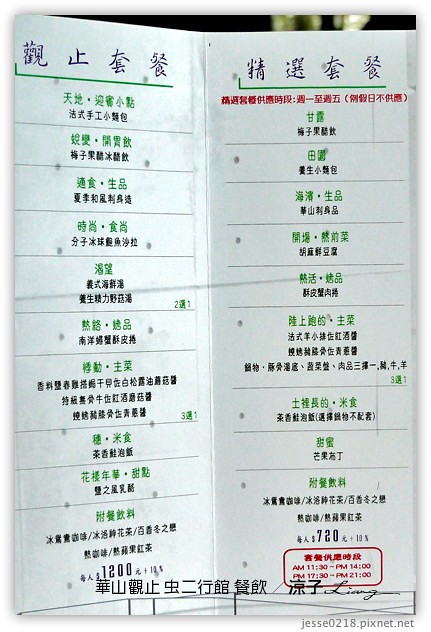 觀止套餐
天地・迎賓小點
法式手工小麵包
蛻變・開胃飲
梅子果醋冰醋飲
適食・生品
夏季和風刺身造
時尚・食尚
分子冰球鮑魚沙拉
渴望
義式海鮮湯
養生精力野菇湯
2選1
熱絡・燒品
南洋蟳蟹酥皮捲
悸動・主菜
香料鹽春雞搭焗干貝佐白松露油蘑菇醬
特級無骨牛佐紅酒蘑菇醬
燒烤豬膝骨佐青蔥醬
3選1
穗・米食
茶香鮭泡飯
花樣年華・甜點
鹽之風乳酪
附餐飲料
冰鴛鴦咖啡/冰洛神花茶/百香冬之戀
熱咖啡/熱蘋果紅茶
每人$1200元+10%
精選套餐
精選套餐供應時段:週一至週五(例假日不供應)
甘露
梅子果醋飲
田園
養生小麵包
海濱・生品
華山刺身品
開場・熱前菜
胡麻鮮豆腐
熱活・燒品
酥皮蟹肉捲
陸上跑的・主菜
法式羊小排佐紅酒醬
燒烤豬膝骨佐青蔥醬
鍋物・豚骨湯底、蔬菜盤、肉品三擇一,豬,牛,羊
3選1
士裡長的・米食
茶香鮭泡飯(選擇鍋物不配套)
甜蜜
芒果布丁
附餐飲料
冰鴛鴦咖啡/冰洛神花茶/百香冬之戀
熱咖啡/熱蘋果紅茶
每人$720元+10%
套餐供應時段
AM 11:30 ~ PM 14:00
PM 17:30 ~ PM 21:00
華山觀止 虫二行館 餐飲 涼子 Liang
jesse0218.pixnet.net